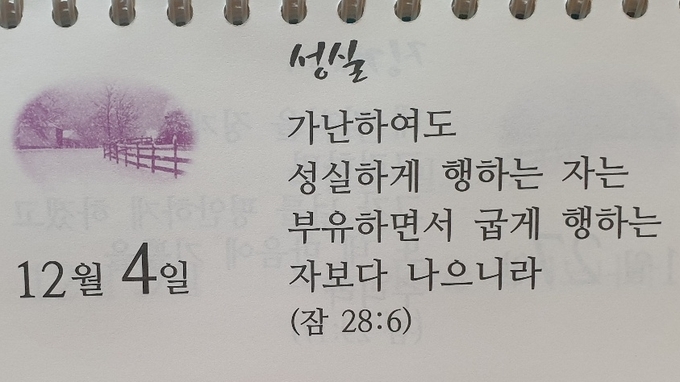 성실
가난하여도
성실하게 행하는 자는
부유하면서 굽게 행하는
자보다 나으니라
(잠 28:6)
12월 4일